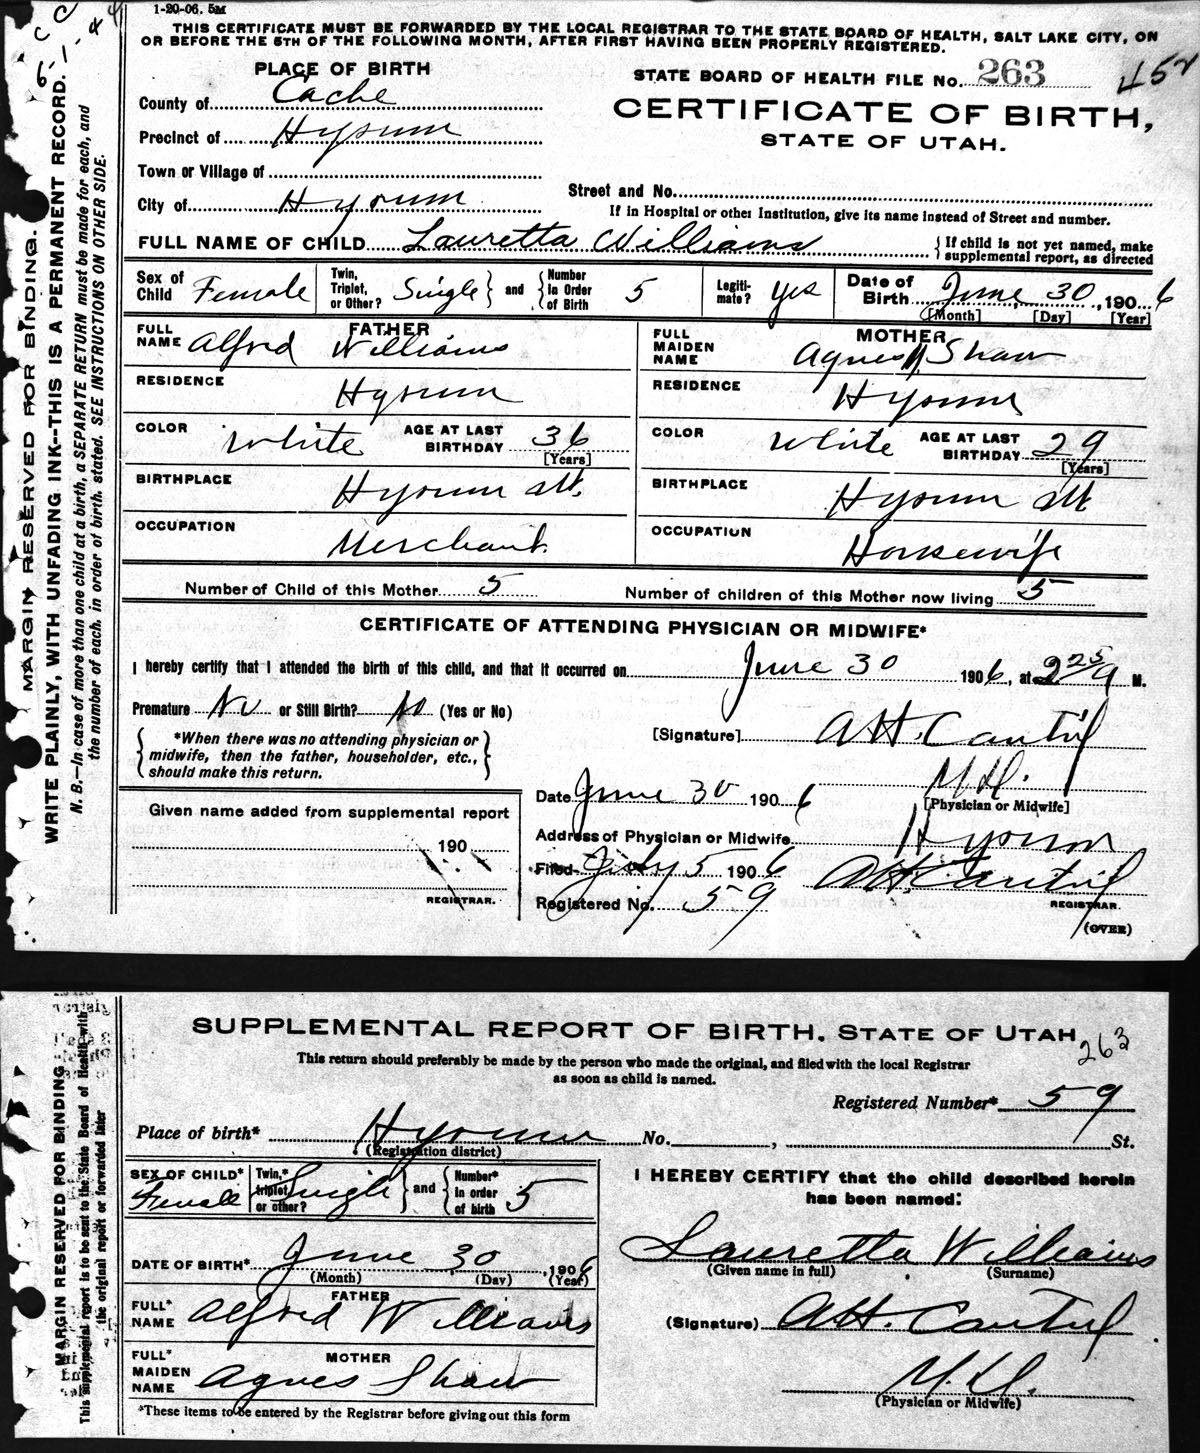 1-20-06. 5M
THIS CERTIFICATE MUST BE FORWARDED BY THE LOCAL REGISTRAR TO THE STATE BOARD OF HEALTH, SALT LAKE CITY, ON
OR BEFORE THE 5TH OF THE FOLLOWING MONTH, AFTER FIRST HAVING BEEN PROPERLY REGISTERED.
PLACE OF BIRTH
STATE BOARD OF HEALTH FILE No. 263
452
County of Cache
CERTIFICATE OF BIRTH,
Precinct of Hyrum
STATE OF UTAH.
Town or Village of
Street and No.
City of Hyrum
If in Hospital or other Institution, give its name instead of Street and number.
FULL NAME OF CHILD Lauretta Williams { If child is not yet named, make supplemental report, as directed
Sex of Child Female Twin, Triplet, or Other? Single } and { Number In Order of Birth 5 Legitimate? yes Date of Birth June 30, 1906
[Month] [Day] [Year]
FATHER
FULL NAME Alfred Williams
MOTHER
FULL MAIDEN NAME Agnes Shaw
RESIDENCE Hyrum
RESIDENCE Hyrum
COLOR White AGE AT LAST BIRTHDAY 36 [Years]
COLOR White AGE AT LAST BIRTHDAY 29 [Years]
BIRTHPLACE Hyrum Ut.
BIRTHPLACE Hyrum Ut
OCCUPATION Merchant.
OCCUPATION Housewife
Number of Child of this Mother 5 Number of children of this Mother now living 5
CERTIFICATE OF ATTENDING PHYSICIAN OR MIDWIFE*
I hereby certify that I attended the birth of this child, and that it occurred on June 30 1906, at 2 25 A M.
Premature No or Still Birth? No (Yes or No)
[Signature] A H. Cantril
M.D.
[Physician or Midwife]
{ *When there was no attending physician or
midwife, then the father, householder, etc.,
should make this return. }
Date June 30 1906
Given name added from supplemental report
190
REGISTRAR.
Address of Physician or Midwife Hyrum
Filed July 5 1906 A H. Cantril
Registered No. 59 REGISTRAR.
(OVER)
MARGIN RESERVED FOR BINDING.
WRITE PLAINLY, WITH UNFADING INK--THIS IS A PERMANENT RECORD.
N. B.—In case of more than one child at a birth, a SEPARATE RETURN must be made for each, and
the number of each, in order of birth, stated. SEE INSTRUCTIONS ON OTHER SIDE.
SUPPLEMENTAL REPORT OF BIRTH. STATE OF UTAH
263
This return should preferably be made by the person who made the original, and filed with the local Registrar
as soon as child is named.
Registered Number* 59
Place of birth* Hyrum No. , St.
(Registration district)
SEX OF CHILD* Female Twin,* triplet or other? Single } and { Number* in order of birth 5
I HEREBY CERTIFY that the child described herein
has been named:
DATE OF BIRTH* June 30, 1906
(Month) (Day) (Year)
Lauretta Williams
(Given name in full) (Surname)
FATHER
FULL* NAME Alfred Williams
(Signature) A H. Cantril
MOTHER
FULL* MAIDEN NAME Agnes Shaw
M.D.
(Physician or Midwife)
*These items to be entered by the Registrar before giving out this form
MARGIN RESERVED FOR BINDING
This supplemental report is to be sent to the State Board of Health with
the original report or forwarded later